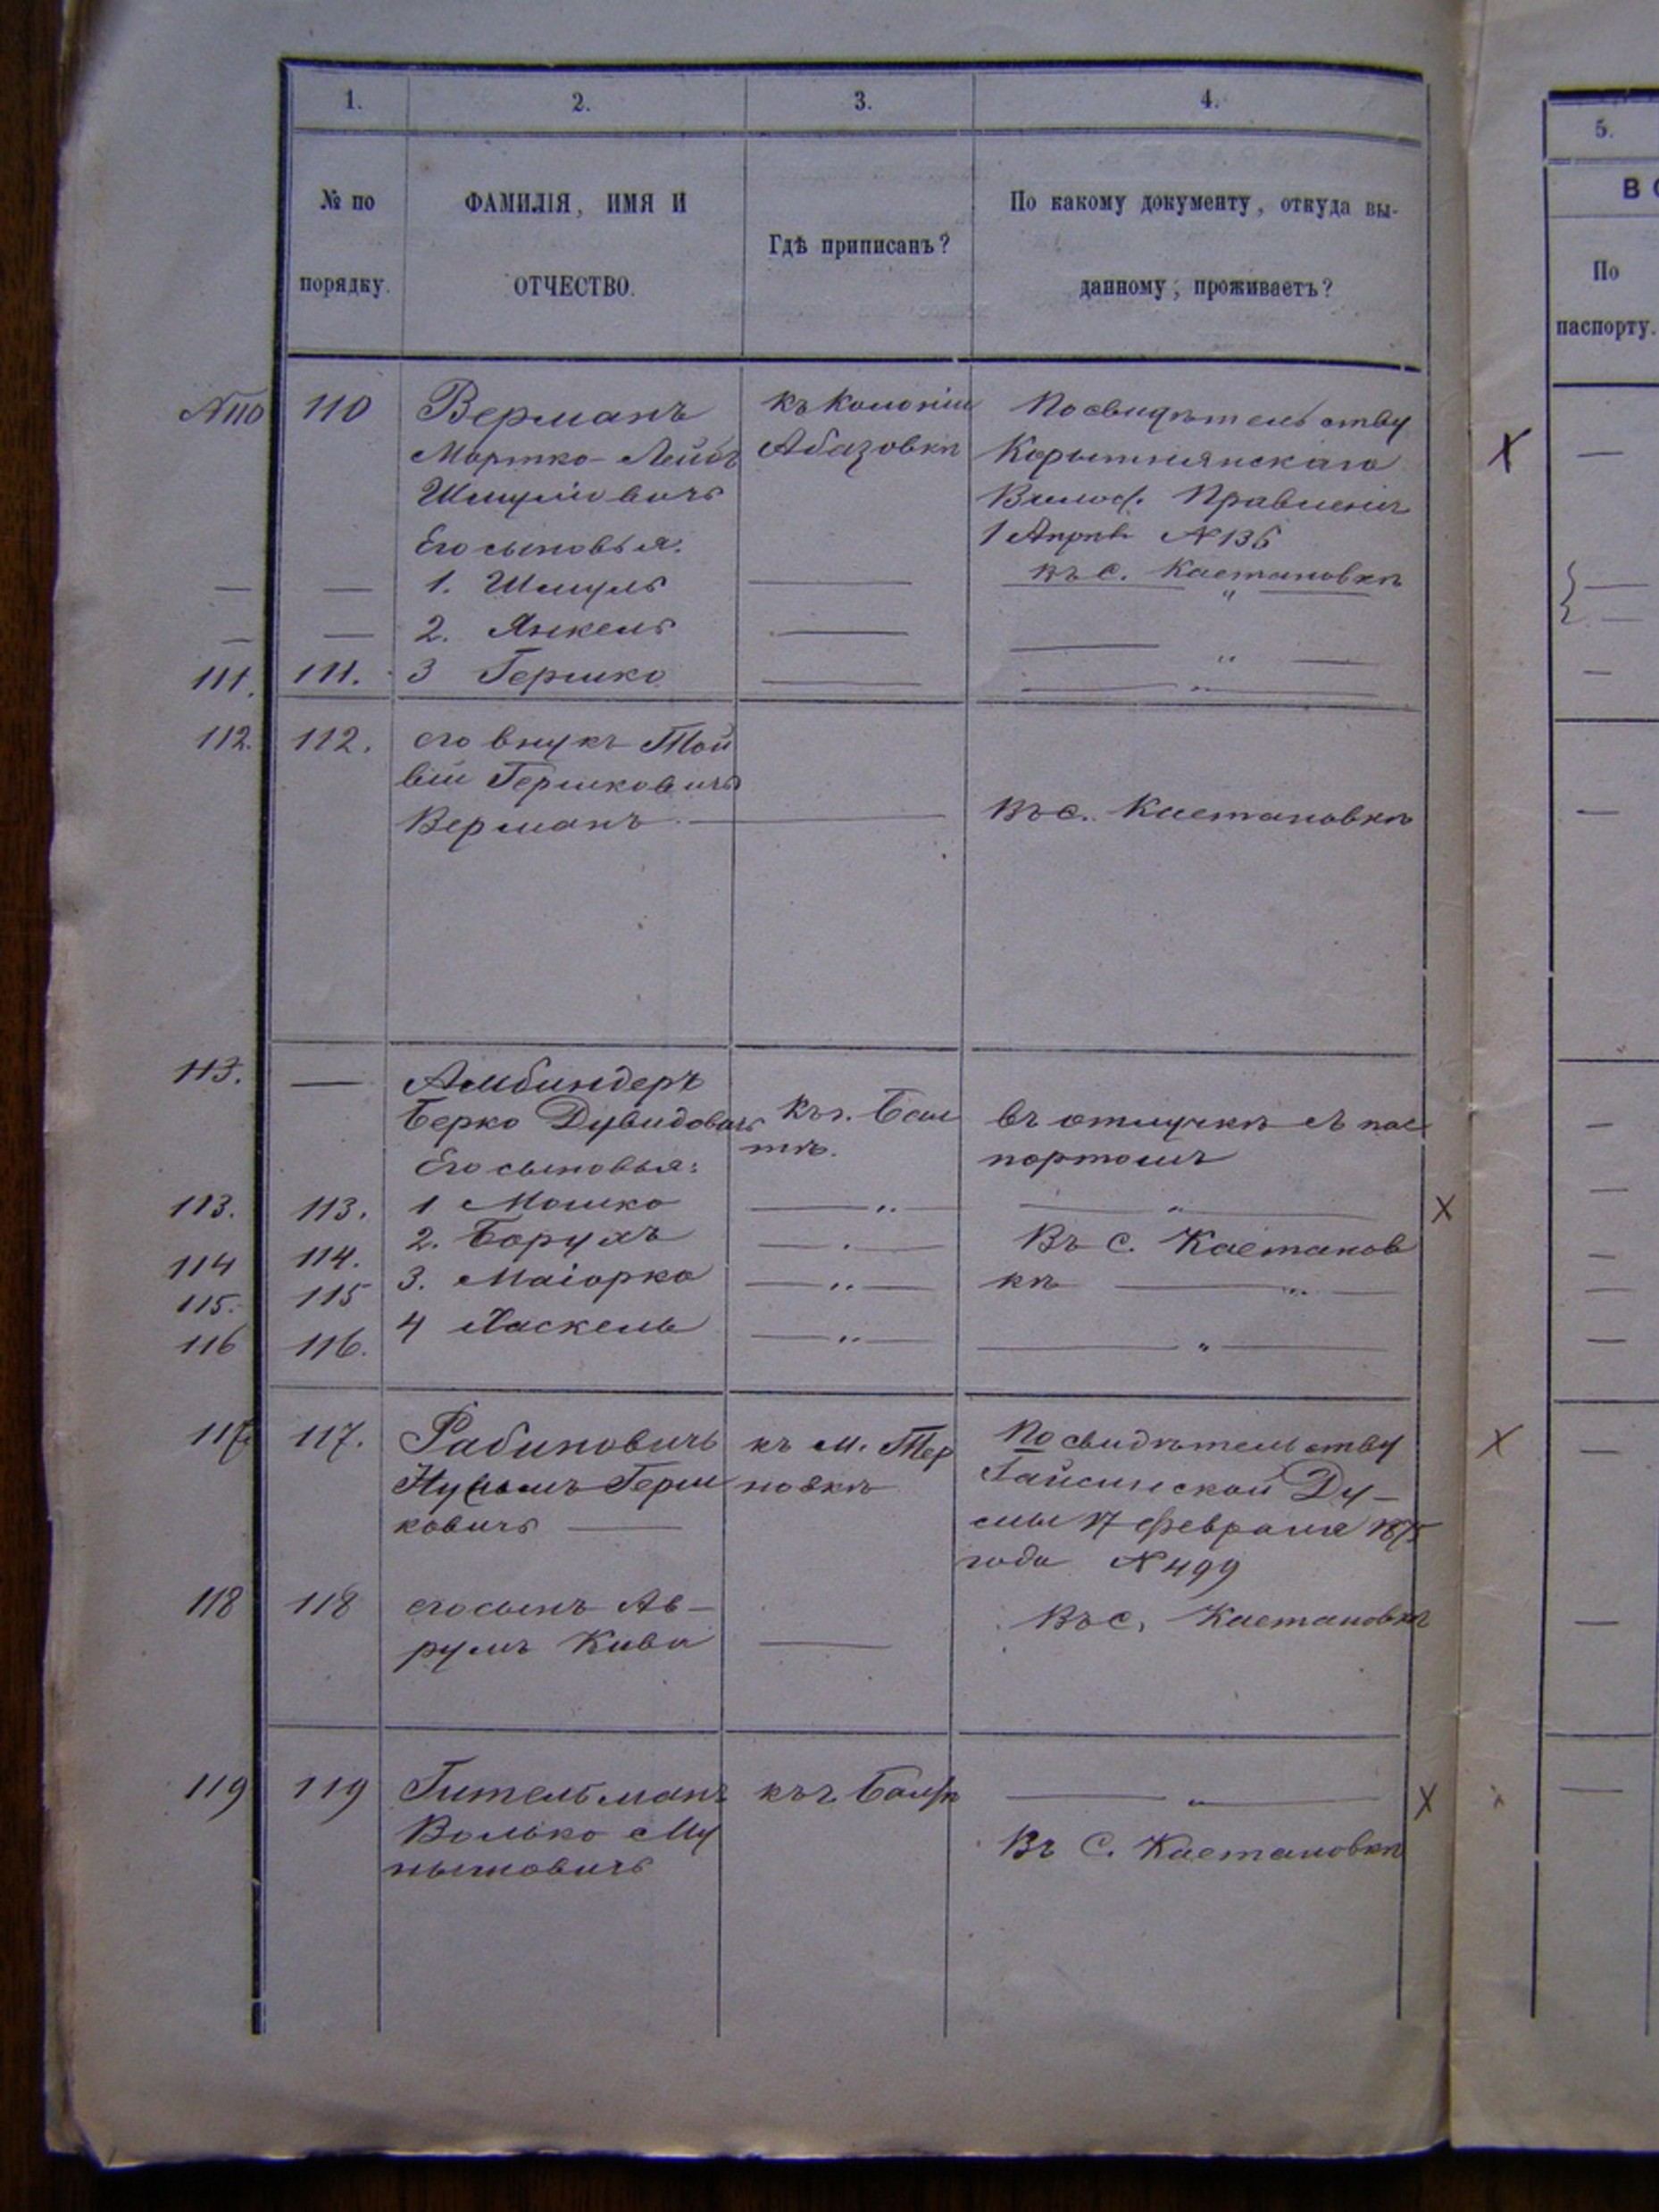 1. 2. 3. 4.
№ по порядку.
ФАМИЛІЯ, ИМЯ И
ОТЧЕСТВО.
Гдѣ приписанъ?
По какому документу, откуда вы-
данному, проживаетъ?
5.
По
паспорту.
№110 110 Верманъ къ Колоніи По свидѣтельству
Мортко-Лейбъ Абазовкѣ
Шмуліовичъ Волос. Правленія
Его сыновья: 1 Апрѣл №136
— — 1. Шмуль — въ с. Каетановкѣ
— — 2. Янкель — — " —
111. 111. 3 Гершко — — " —
112. 112. его внукъ Той
вій Гершковичъ
Верманъ — Въ с. Каетановкѣ
113. — Альбиндеръ
Берко Дувидовичъ къ г. Бал въ отлучкѣ съ пас
тѣ. портомъ
Его сыновья:
113. 113. 1 Мошко — " — — " — X
114 114. 2. Борухъ — " — Въ с. Каетанов
115. 115 3. Маіорко — " — кѣ — " —
116 116. 4 Хаскель — " — — " —
117. 117. Рабиновичъ къ м. Тер По свидѣтельству X
Герш новкѣ Гайсинской Ду-
ковичъ — мы 17 Февраля 1875
года №499
118 118 его сынъ Ав- Въ с. Каетановкѣ
румъ Кива —
119 119 Гительманъ къ г. Балтѣ — " — X
Волько Му Въ С. Каетановкѣ